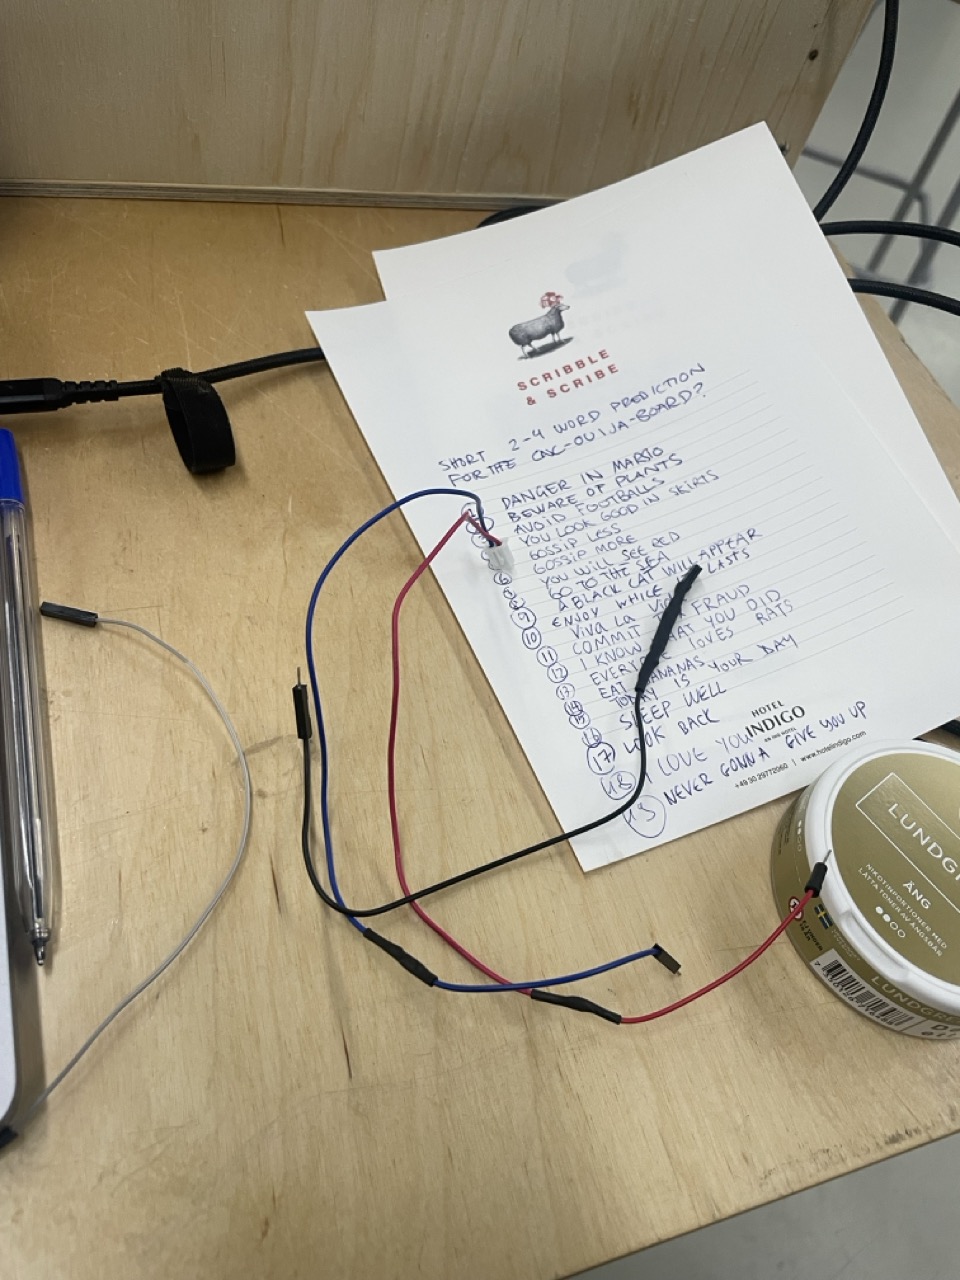 SCRIBBLE
& SCRIBE
SHORT 2-4 WORD PREDICTION
FOR THE CNC-OUIJA-BOARD?
DANGER IN MARIO
BEWARE OF PLANTS
AVOID FOOTBALLS
YOU LOOK GOOD IN SKIRTS
GOSSIP LESS
6 GOSSIP MORE
YOU WILL SEE RED
8 GO TO THE SEA
9 A BLACK CAT WILL APPEAR
10 ENJOY WHILE LASTS
11 VIVA LA VIDA
12 COMMIT FRAUD
13 I KNOW WHAT YOU DID
14 EVERYONE LOVES RATS
15 EAT BANANAS
16 TODAY IS YOUR DAY
17 SLEEP WELL
LOOK BACK
18 I LOVE YOU
19 NEVER GONNA GIVE YOU UP
HOTEL
INDIGO
AN IHG HOTEL
+49 30 29772060 | www.hotelindigo.com
LUNDGR
ÄNG
NIKOTINPORTIONER MED
LÄTTA TONER AV ÄNGSBÄR
LUNDGRE